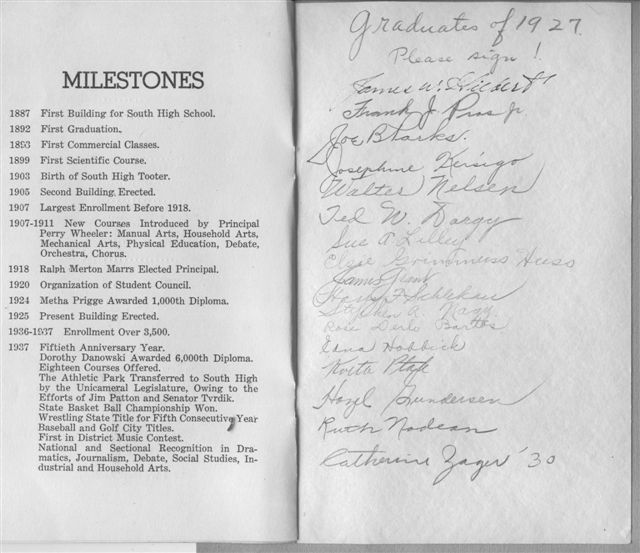 MILESTONES
1887 First Building for South High School.
1892 First Graduation.
1893 First Commercial Classes.
1899 First Scientific Course.
1903 Birth of South High Tooter.
1905 Second Building Erected.
1907 Largest Enrollment Before 1918.
1907-1911 New Courses Introduced by Principal
Perry Wheeler: Manual Arts, Household Arts,
Mechanical Arts, Physical Education, Debate,
Orchestra, Chorus.
1918 Ralph Merton Marrs Elected Principal.
1920 Organization of Student Council.
1924 Metha Prigge Awarded 1,000th Diploma.
1925 Present Building Erected.
1936-1937 Enrollment Over 3,500.
1937 Fiftieth Anniversary Year.
Dorothy Danowski Awarded 6,000th Diploma.
Eighteen Courses Offered.
The Athletic Park Transferred to South High
by the Unicameral Legislature, Owing to the
Efforts of Jim Patton and Senator Tvrdik.
State Basket Ball Championship Won.
Wrestling State Title for Fifth Consecutive Year
Baseball and Golf City Titles.
First in District Music Contest.
National and Sectional Recognition in Dra-
matics, Journalism, Debate, Social Studies, In-
dustrial and Household Arts.
Graduates of 1927
Please sign!
James W.
Frank J.
Joe
Josephine Kersigo
Walter Nelsen
Ted W.
Sue A Lilley
Elsie Huss
James
Stephen A. Nagy
Rose Bartos
Edna Hobbick
Hazel Gundersen
Ruth Nodean
Catherine Zager '30